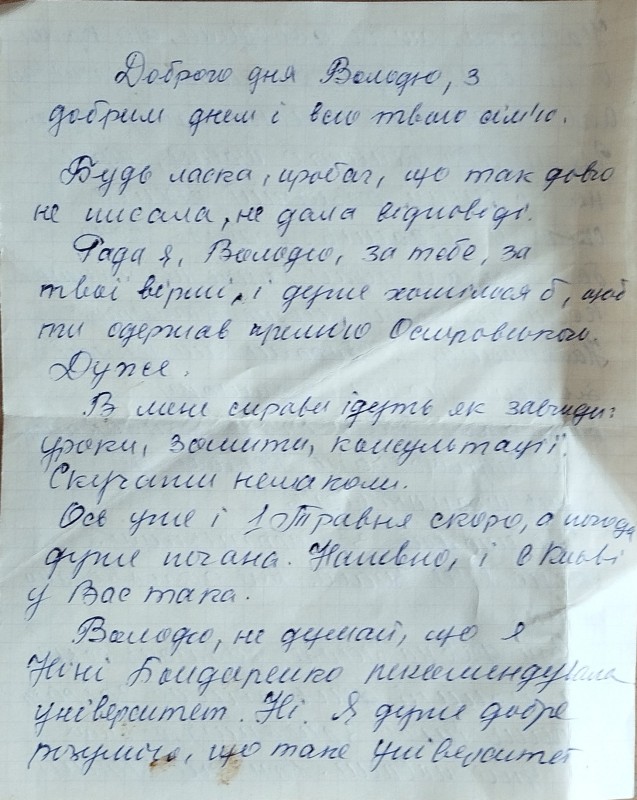 Доброго дня Володю, з
добрим днем і всю твою сім'ю.
Будь ласка, пробач, що так довго
не писала, не дала відповіді.
Рада я, Володю, за тебе, за
твої вірші, і дуже хотілося б, щоб
ти одержав премію Островського.
Дуже.
В мене справи ідуть як завжди:
уроки, зошити, консультації.
Скучати немаколи.
Ось уже і 1 Травня скоро, а погода
дуже погана. Напевно, і в Києві
у Вас така.
Володю, не думай, що я
Ніні Бондаренко рекомендувала
університет. Ні. Я дуже добре
розумію, що таке університет